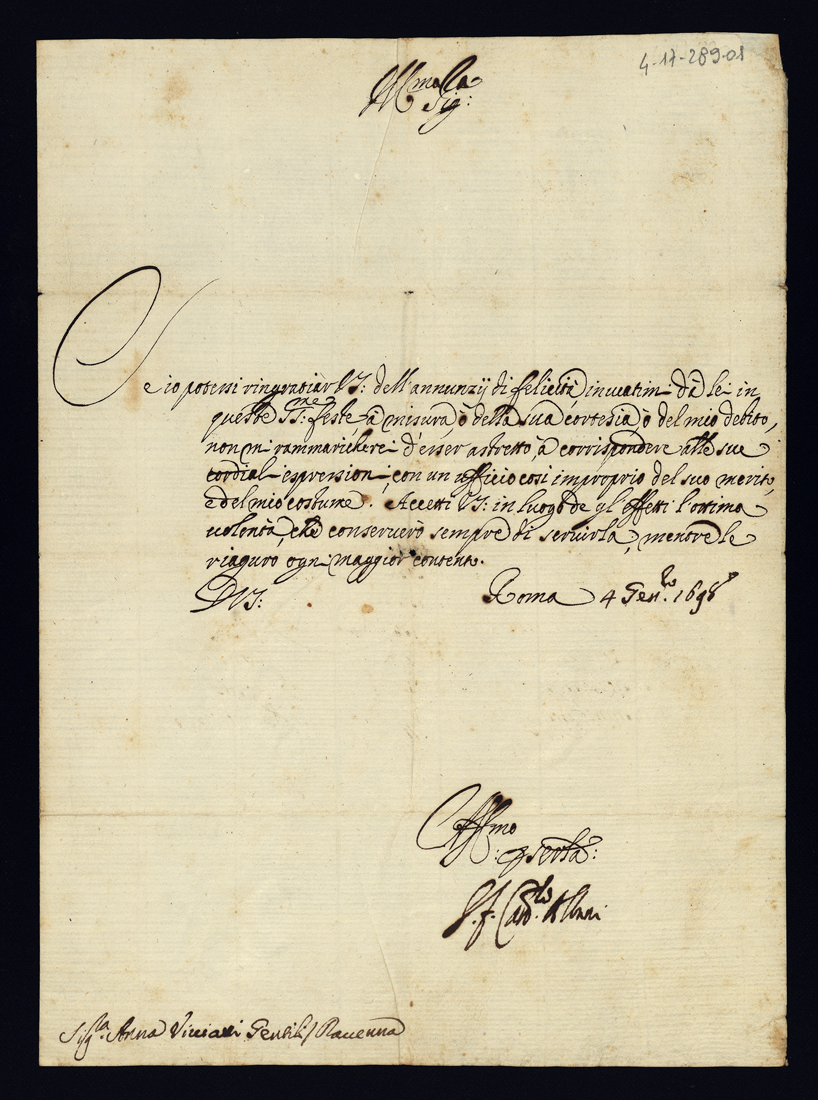 4-17-289-01
Ill:ma Sig:ra
Se io potessi ringratiar VS: dell'annunzij di felicità inviatimi dà lei in
queste SS:me feste, à misura, ò della sua cortesia, ò del mio debito,
non mi rammaricherei d'esser astretto, à corrispondere alle sue
cordiali espressioni, con un officio così improprio del suo merito,
e del mio costume. Accetti VS: in luogo de gl'effetti l'ottima
volontà, che conserverò sempre di servirla, mentre le
auguro ogni maggior contento.
D VS:
Roma 4 Gen:ro 1698
Aff:mo
Card:le Albani
Sig:ra Anna Gentili / Ravenna